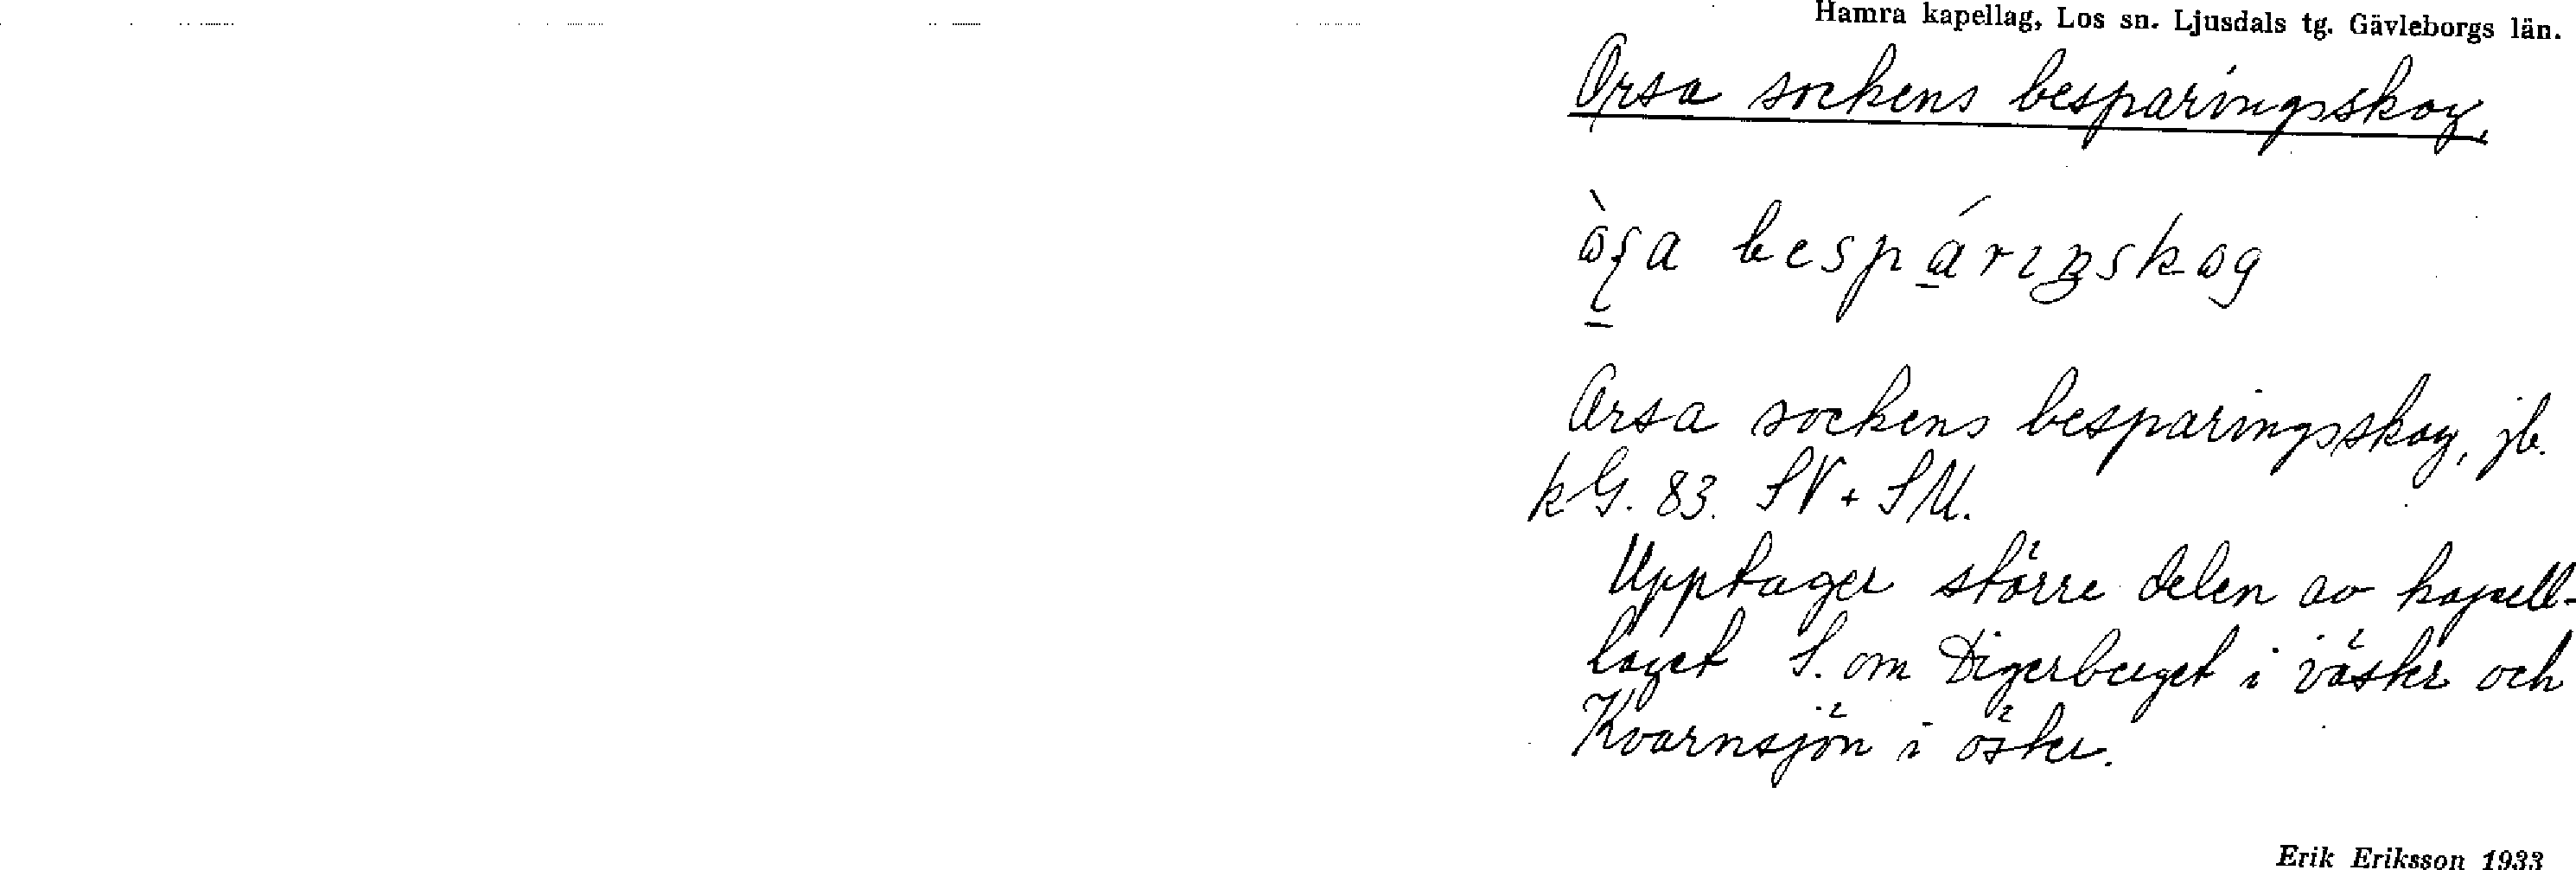 Hamra kapellag, Los sn. Ljusdals tg. Gävleborgs län.
Orsa sockens besparingsskog.
Orsa sockens besparingsskog, jb.
kG. 83. SV + SU.
Upptager större delen av kapell-
laget S. om Digerberget i väster och
Kvarnsjön i öster.
Erik Eriksson 1933